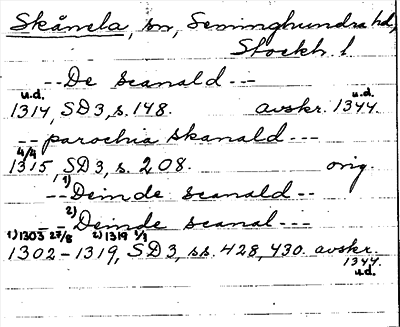 Skånela, sn, Seminghundra hd,
Stockh. l.
--De scanald---
u.d. u.d.
1314, SD3, s. 148. avskr. 1344.
-- parochia skanald---
4/4
1315, SD3, s. 208. orig.
--1) Deinde scanald--
--2) Deinde scanal---
1) 1303 27/8 2) 1319
1302-1319, SD3, ss. 428, 430. avskr.
1344.
u.d.